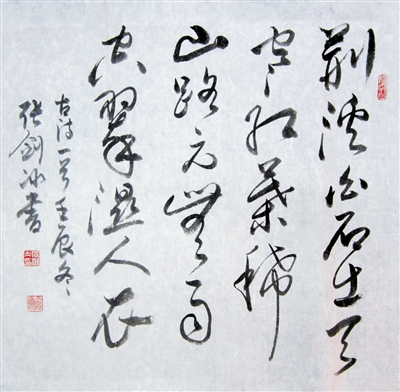 荆溪白石出天
寒红葉稀
山路元無雨
空翠濕人衣
古诗一首壬辰冬
张劍冰書